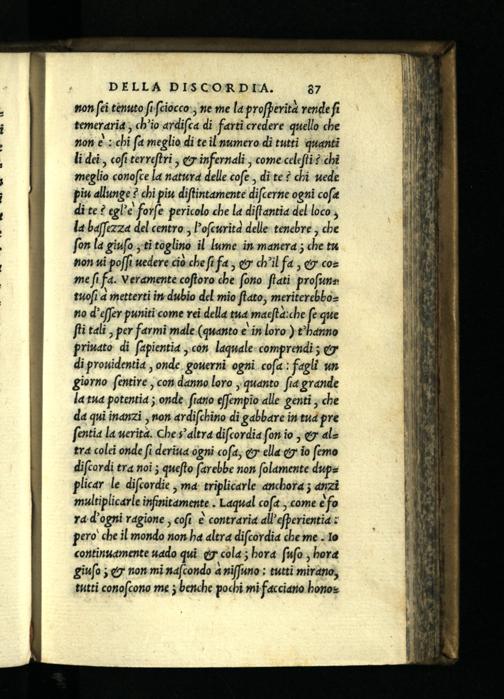 DELLA DISCORDIA. 87
non sei tenuto si sciocco, ne me la prosperità rende si
temeraria, ch'io ardisca di farti credere quello che
non è: chi sa meglio di te il numero di tutti quanti
li dei, cosi terrestri, & infernali, come celesti? chi
meglio conosce la natura delle cose, di te? chi uede
piu allunge? chi piu distintamente discerne ogni cosa
di te? egl'è forse pericolo che la distantia del loco,
la bassezza del centro, l'oscurità delle tenebre, che
son la giuso, ti toglino il lume in manera; che tu
non ui possi uedere ciò che si fa, & ch'il fa, & co=
me si fa. Veramente costoro che sono stati prosun=
tuosi à metterti in dubio del mio stato, meriterebbo=
no d'esser puniti come rei della tua maestà: che se que
sti tali, per farmi male (quanto è in loro) t'hanno
priuato di sapientia, con laquale comprendi; &
di prouidentia, onde gouerni ogni cosa: fagli un
giorno sentire, con danno loro, quanto sia grande
la tua potentia; onde siano essempio alle genti, che
da qui inanzi, non ardischino di gabbare in tua pre
sentia la uerità. Che s'altra discordia son io, & al=
tra colei onde si deriua ogni cosa, & ella & io semo
discordi tra noi; questo sarebbe non solamente dup=
plicar le discordie, ma triplicarle anchora; anzi
multiplicarle infinitamente. Laqual cosa, come è fo
ra d'ogni ragione, cosi è contraria all'esperientia:
pero che il mondo non ha altra discordia che me. Io
continuamente uado qui & cola; hora suso, hora
giuso; & non mi nascondo à nissuno: tutti mirano,
tutti conoscono me; benche pochi mi facciano hono=